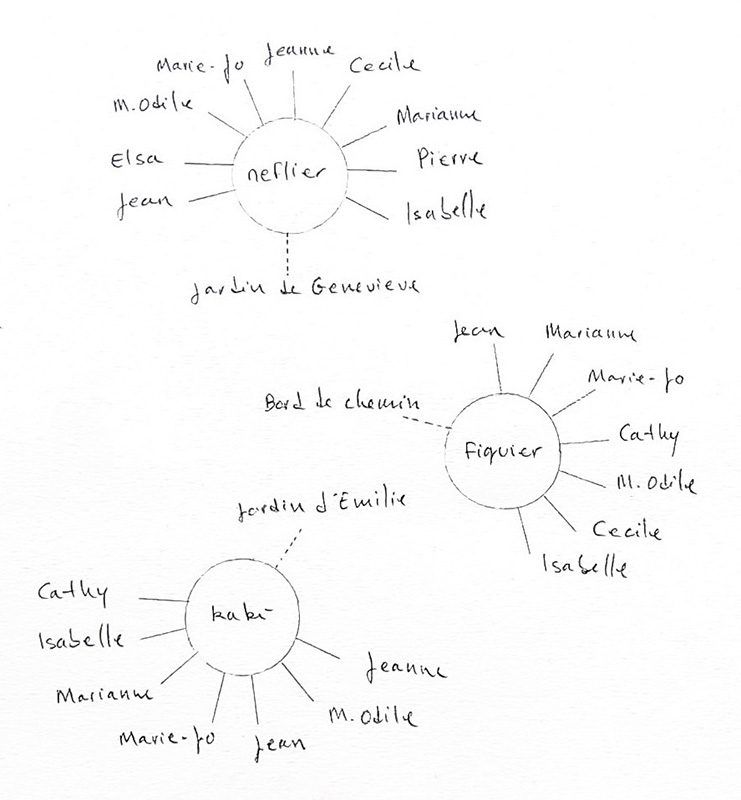 Jeanne
Marie-Jo
Cecile
M. Odile
Marianne
Elsa
neflier
Pierre
Jean
Isabelle
Jardin de Genevieve
Jean
Marianne
Marie-Jo
Bord de chemin
Cathy
Figuier
M. Odile
Cecile
Isabelle
Jardin d'Emilie
Cathy
kaki
Isabelle
Jeanne
Marianne
M. Odile
Marie-Jo
Jean